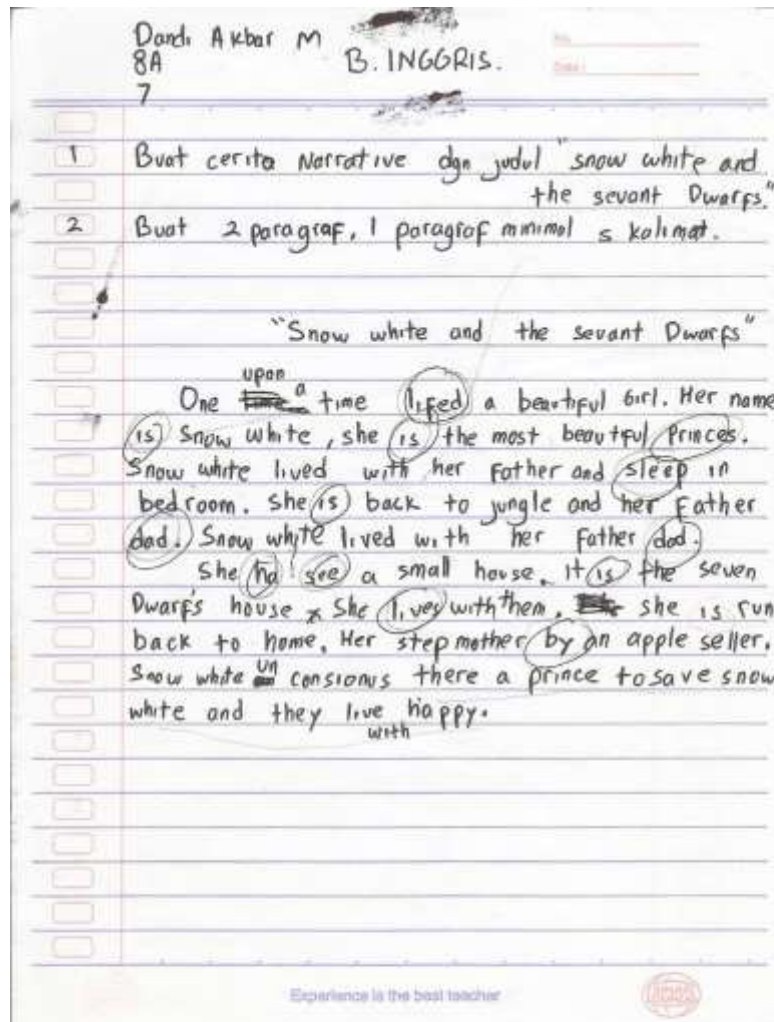 Dandi Akbar M
8A
B. INGGRIS.
7
No.
Date :
1 Buat cerita Narrative dgn judul "snow white and
the sevant Dwarfs."
2 Buat 2 paragraf, 1 paragraf minimal 5 kalimat.
"Snow white and the sevant Dwarfs"
upon a
One time lifed a beautiful Girl. Her name
is Snow white, she is the most beautful Princes.
Snow white lived with her Father and sleep in
bedroom. She is back to jungle and her Father
dad. Snow white lived with her Father dad.
She ha see a small house. it is the seven
Dwarf's house x She lives with them. she is run
back to home. Her stepmother by an apple seller.
Snow white un consionus there a prince to save snow
white and they live happy.
with
Experience is the best teacher